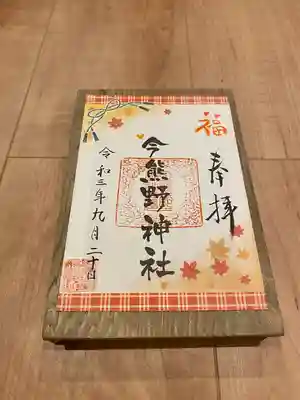 福
奉拝
今熊野神社
令和三年九月二十日